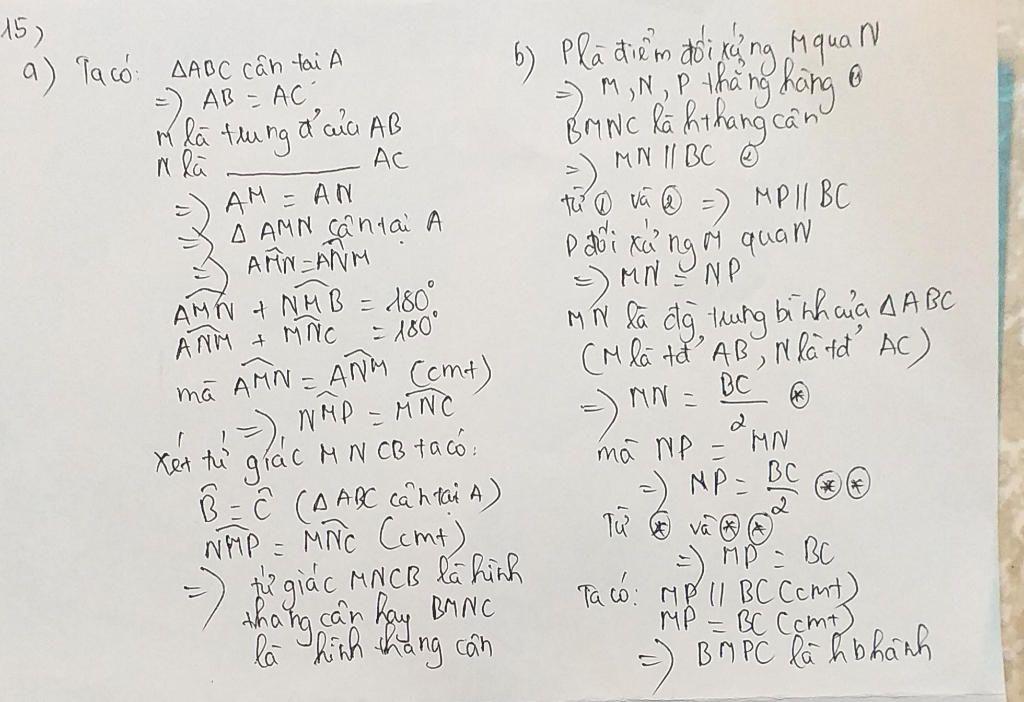 15)
a) Ta có: ΔABC cân tại A
=> AB = AC
M là trung đ' của AB
N là ________ AC
=> AM = AN
=> Δ AMN cân tại A
=> AMN = ANM
AMN + NMB = 180°
ANM + MNC = 180°
mà AMN = ANM (cmt)
=> NMP = MNC
Xét tứ giác MNCB ta có:
B = C (ΔABC cân tại A)
NMP = MNC (cmt)
=> tứ giác MNCB là hình
thang cân hay BMNC
là hình thang cân
b) P là điểm đối xứng M qua N
=> M, N, P thẳng hàng ①
BMNC là hthang cân
=> MN // BC ②
từ ① và ② => MP // BC
P đối xứng M qua N
=> MN = NP
MN là đg trung bình của ΔABC
(M là tđ' AB, N là tđ' AC)
=> MN = BC/2 ⊛
mà NP = MN
=> NP = BC/2 ⊛⊛
Từ ⊛ và ⊛⊛
=> MP = BC
Ta có: MP // BC (cmt)
MP = BC (cmt)
=> BMPC là hbhành